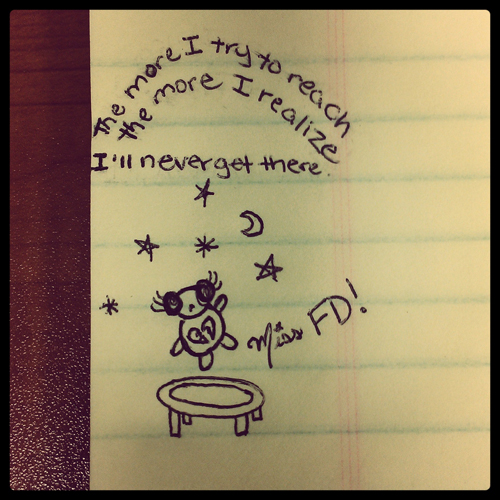 The more I try to reach
the more I realize
I'll never get there.
Miss FD!